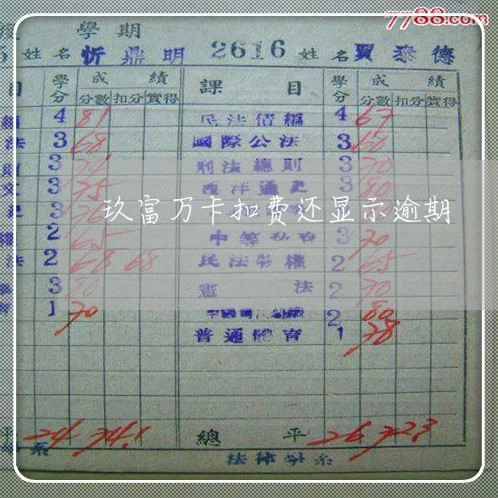 7788.com
學期
姓名 忻鼎明 2616 姓名 賈泰德
目 學分 成績 課目 學分 成績
分數 扣分 實得 分數 扣分 實得
4 81 民法債編 4 67
法 3 68 國際公法 3 60
3 刑法總則 3 70
3 75 西洋通史 3 80
玖富万卡扣费还显示逾期
2 65 3 70
法 2 68 68 民法物權 2 65
3 80 憲法 2 70
1 70 2 80
普通體育 1 78
平 24 74.1 總平 26 72.3
系 法律學系